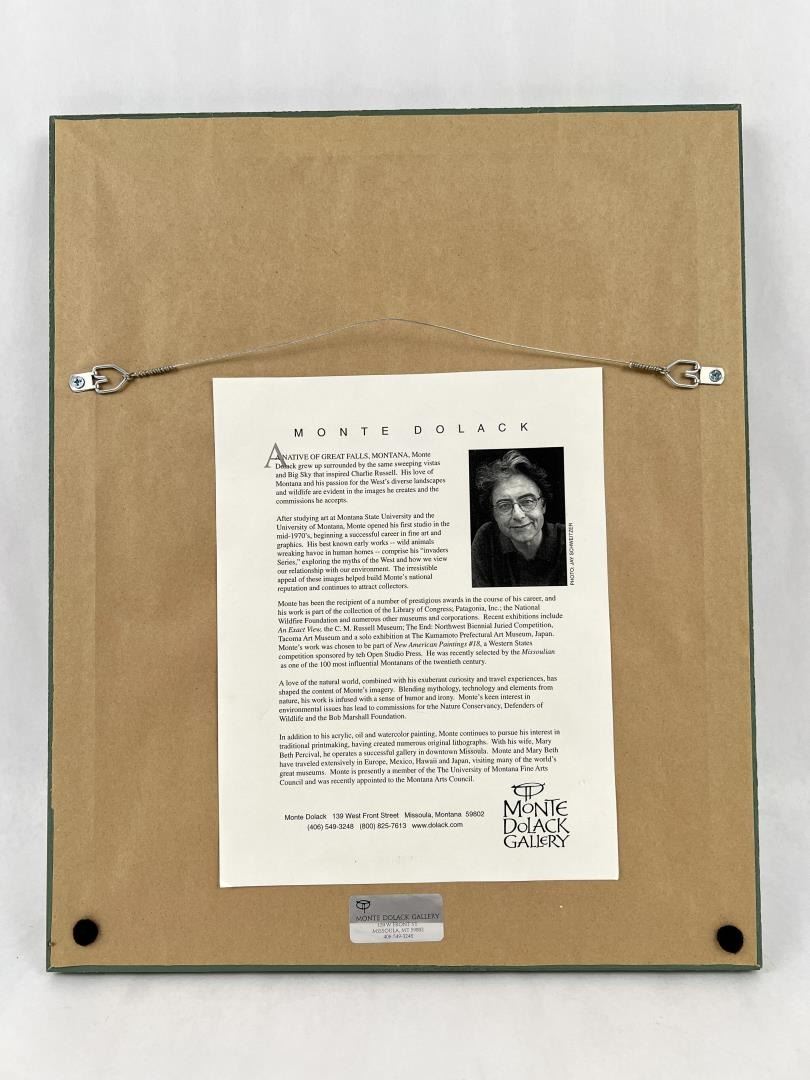 MONTE DOLACK
A NATIVE OF GREAT FALLS, MONTANA, Monte
Dolack grew up surrounded by the same sweeping vistas
and Big Sky that inspired Charlie Russell. His love of
Montana and his passion for the West's diverse landscapes
and wildlife are evident in the images he creates and the
commissions he accepts.
After studying art at Montana State University and the
University of Montana, Monte opened his first studio in the
mid-1970's, beginning a successful career in fine art and
graphics. His best known early works -- wild animals
wreaking havoc in human homes -- comprise his "invaders
Series," exploring the myths of the West and how we view
our relationship with our environment. The irresistible
appeal of these images helped build Monte's national
reputation and continues to attract collectors.
PHOTO: JAY SCHWEITZER
Monte has been the recipient of a number of prestigious awards in the course of his career, and
his work is part of the collection of the Library of Congress; Patagonia, Inc.; the National
Wildfire Foundation and numerous other museums and corporations. Recent exhibitions include
An Exact View, the C. M. Russell Museum; The End: Northwest Biennial Juried Competition,
Tacoma Art Museum and a solo exhibition at The Kumamoto Prefectural Art Museum, Japan.
Monte's work was chosen to be part of New American Paintings #18, a Western States
competition sponsored by teh Open Studio Press. He was recently selected by the Missoulian
as one of the 100 most influential Montanans of the twentieth century.
A love of the natural world, combined with his exuberant curiosity and travel experiences, has
shaped the content of Monte's imagery. Blending mythology, technology and elements from
nature, his work is infused with a sense of humor and irony. Monte's keen interest in
environmental issues has lead to commissions for trhe Nature Conservancy, Defenders of
Wildlife and the Bob Marshall Foundation.
In addition to his acrylic, oil and watercolor painting, Monte continues to pursue his interest in
traditional printmaking, having created numerous original lithographs. With his wife, Mary
Beth Percival, he operates a successful gallery in downtown Missoula. Monte and Mary Beth
have traveled extensively in Europe, Mexico, Hawaii and Japan, visiting many of the world's
great museums. Monte is presently a member of the The University of Montana Fine Arts
Council and was recently appointed to the Montana Arts Council.
Monte Dolack 139 West Front Street Missoula, Montana 59802
(406) 549-3248 (800) 825-7613 www.dolack.com
MONTE
DOLACK
GALLERY
MONTE DOLACK GALLERY
139 W. FRONT ST.
MISSOULA, MT 59802
406-549-3248